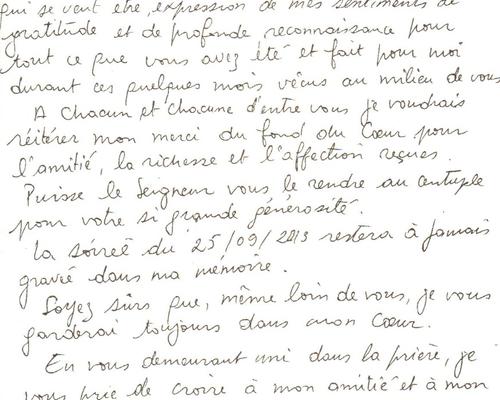 qui se veut être, expression de mes sentiments de
gratitude et de profonde reconnaissance pour
tout ce que vous avez été et fait pour moi
durant ces quelques mois vécus au milieu de vous
A chacun et chacune d'entre vous je voudrais
réitérer mon merci du fond du Cœur pour
l'amitié, la richesse et l'affection reçues.
Puisse le Seigneur vous le rendre au centuple
pour votre si grande générosité.
La soirée du 25/09/2013 restera à jamais
gravée dans ma mémoire.
Soyez sûrs que, même loin de vous, je vous
garderai toujours dans mon Cœur.
En vous demeurant uni dans la prière, je
vous prie de croire à mon amitié et à mon